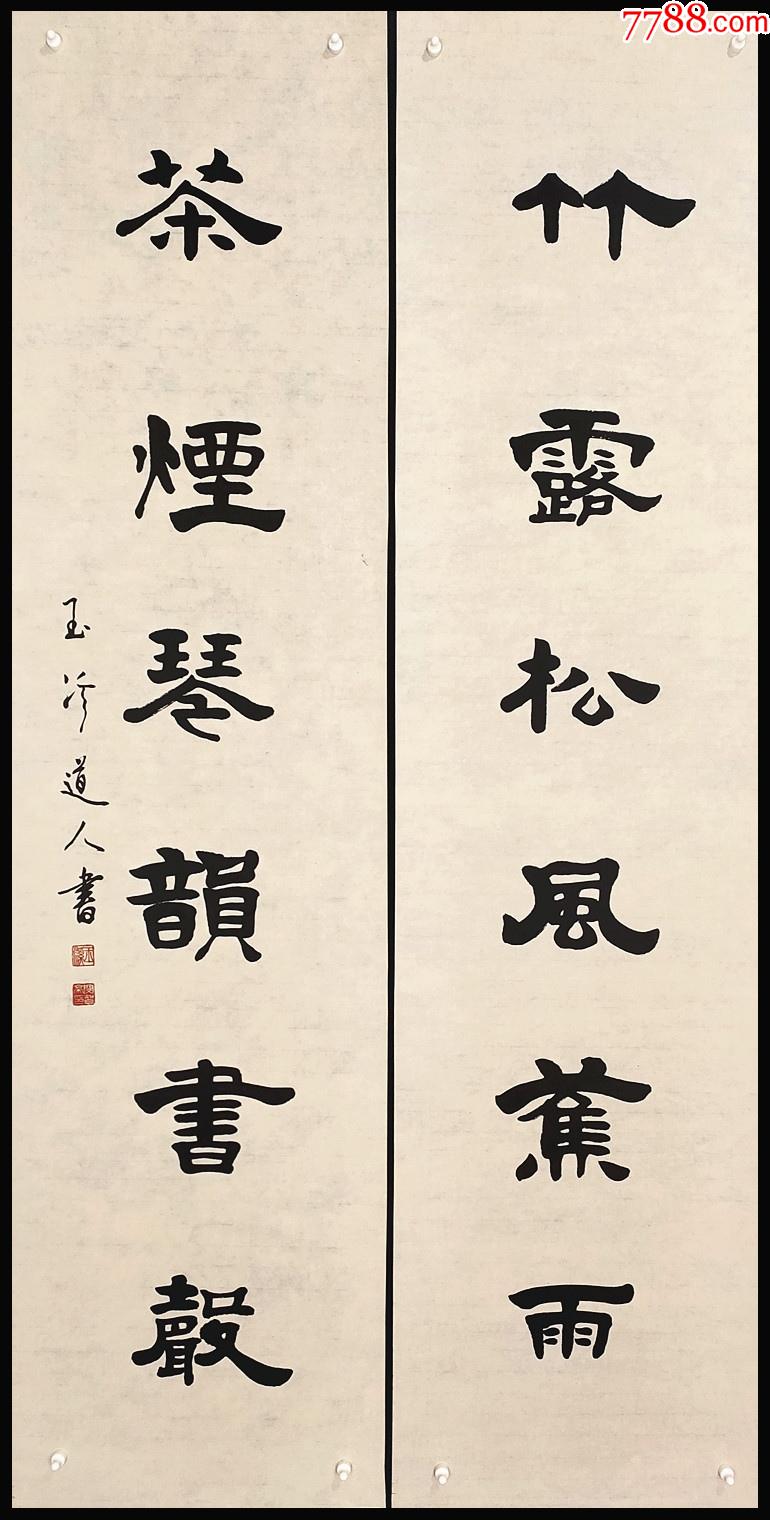 7788.com
竹露松風蕉雨
茶煙琴韻書聲
玉泠道人書